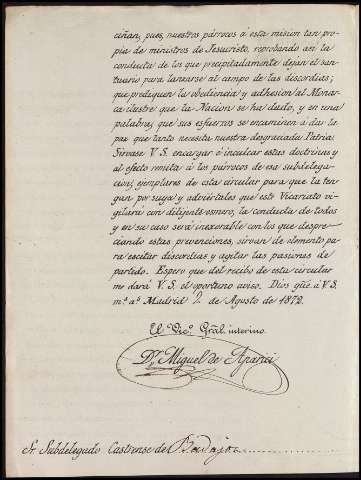 ciñan, pues, nuestros párrocos à esta mision tan pro-
pia de ministros de Jesucristo, reprobando asi la
conducta de los que precipitadamente dejan el san-
tuario para lanzarse al campo de las discordias;
que prediquen la obediencia y adhesion al Monar-
ca ilustre que la Nacion se ha dado, y en una
palabra, que sus esfuerzos se encaminen à dar la
paz que tanto necesita nuestra desgraciada Patria.
Sirvase V. S. encargar è inculcar estas doctrinas y
al efecto remita à los párrocos de esa subdelega-
cion, ejemplares de esta circular para que la ten-
gan por suya; y adviertales que este Vicariato vi-
gilará con diligente esmero, la conducta de todos
y en su caso será inexorable con los que despre-
ciando estas prevenciones, sirvan de elemento pa-
ra escitar discordias y agitar las pasiones de
partido. Espero que del recibo de esta circular
me dará V. S. el oportuno aviso. Dios gûe à V. S.
m.s a.s Madrid 2 de Agosto de 1872.
El Vic.o Gräl. interino.
D.r Miguel de Aparici
Sr. Subdelegado Castrense de Badajoz